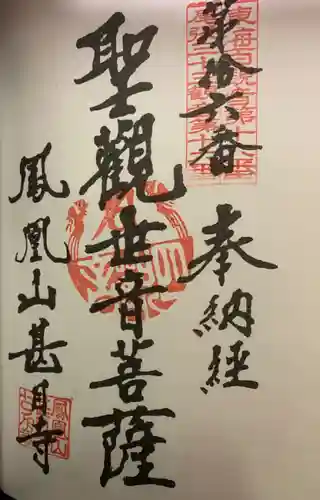 第拾六番
奉納経
聖觀世音菩薩
鳳凰山甚目寺